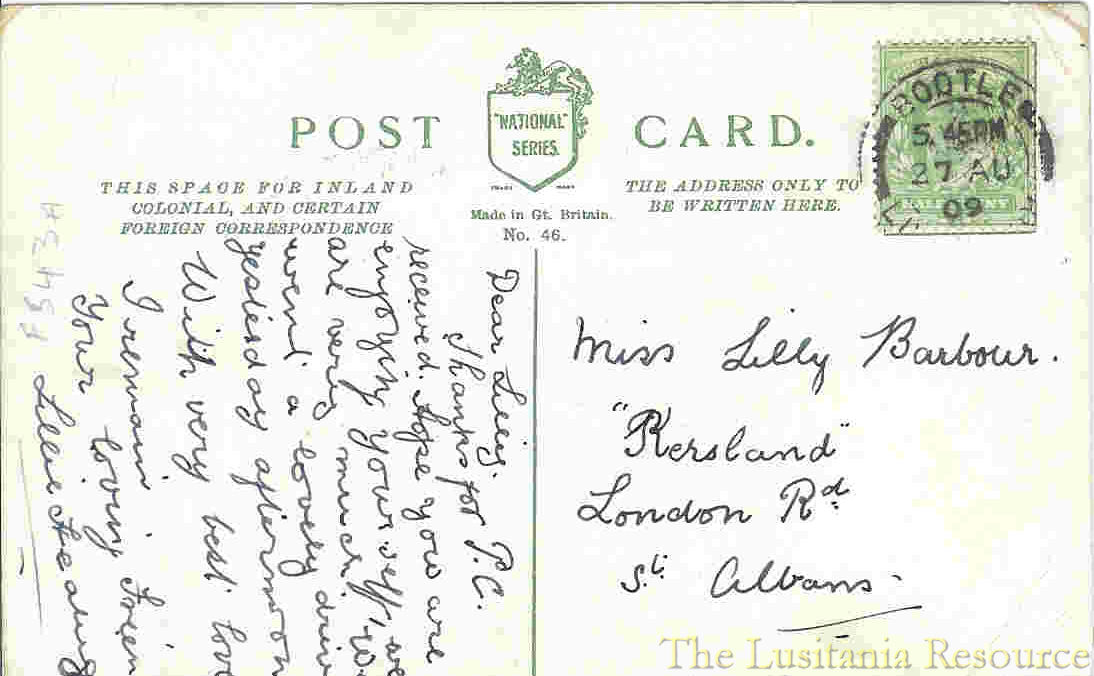 POST CARD.
"NATIONAL"
SERIES.
TRADE MARK
THIS SPACE FOR INLAND
COLONIAL, AND CERTAIN
FOREIGN CORRESPONDENCE
Made in Gt. Britain.
No. 46.
THE ADDRESS ONLY TO
BE WRITTEN HERE.
BOOTLE
5. 45 PM
27 AU
09
Dear Lilly.
Thanks for P.C.
received. Hope you are
enjoying yourself, we
are very much. We
went a lovely driv
yesterday afternoon
With very best love
I remain
Your loving Frien
Lillie
Miss Lilly Barbour.
"Kersland"
London Rd.
St. Albans
The Lusitania Resource